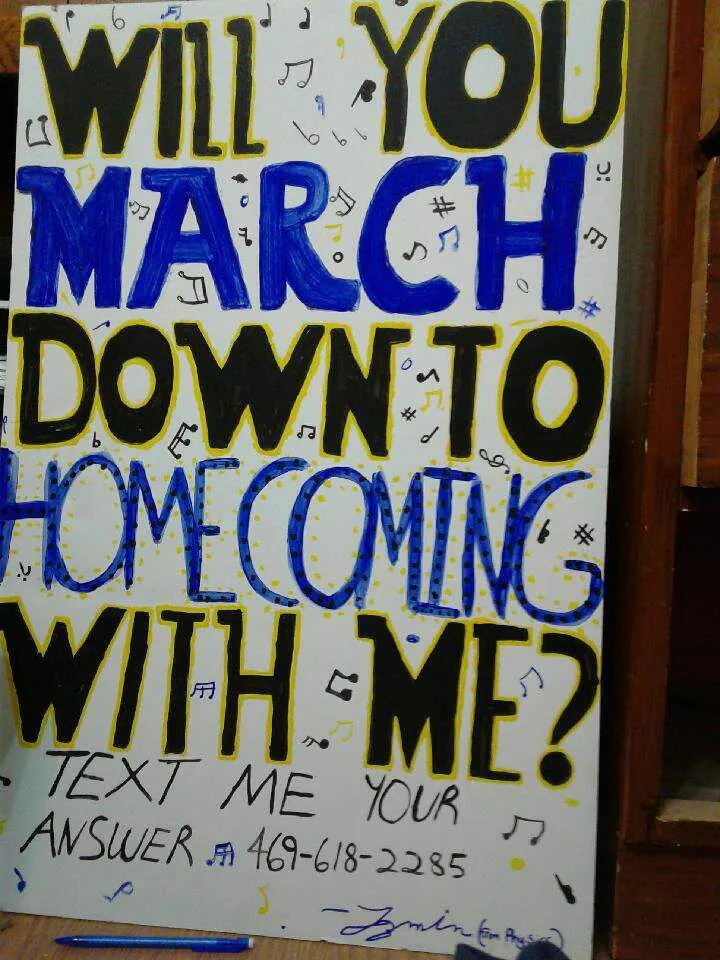 WILL YOU
MARCH
DOWN TO
HOMECOMING
WITH ME?
TEXT ME YOUR
ANSWER 469-618-2285
(from Physics)